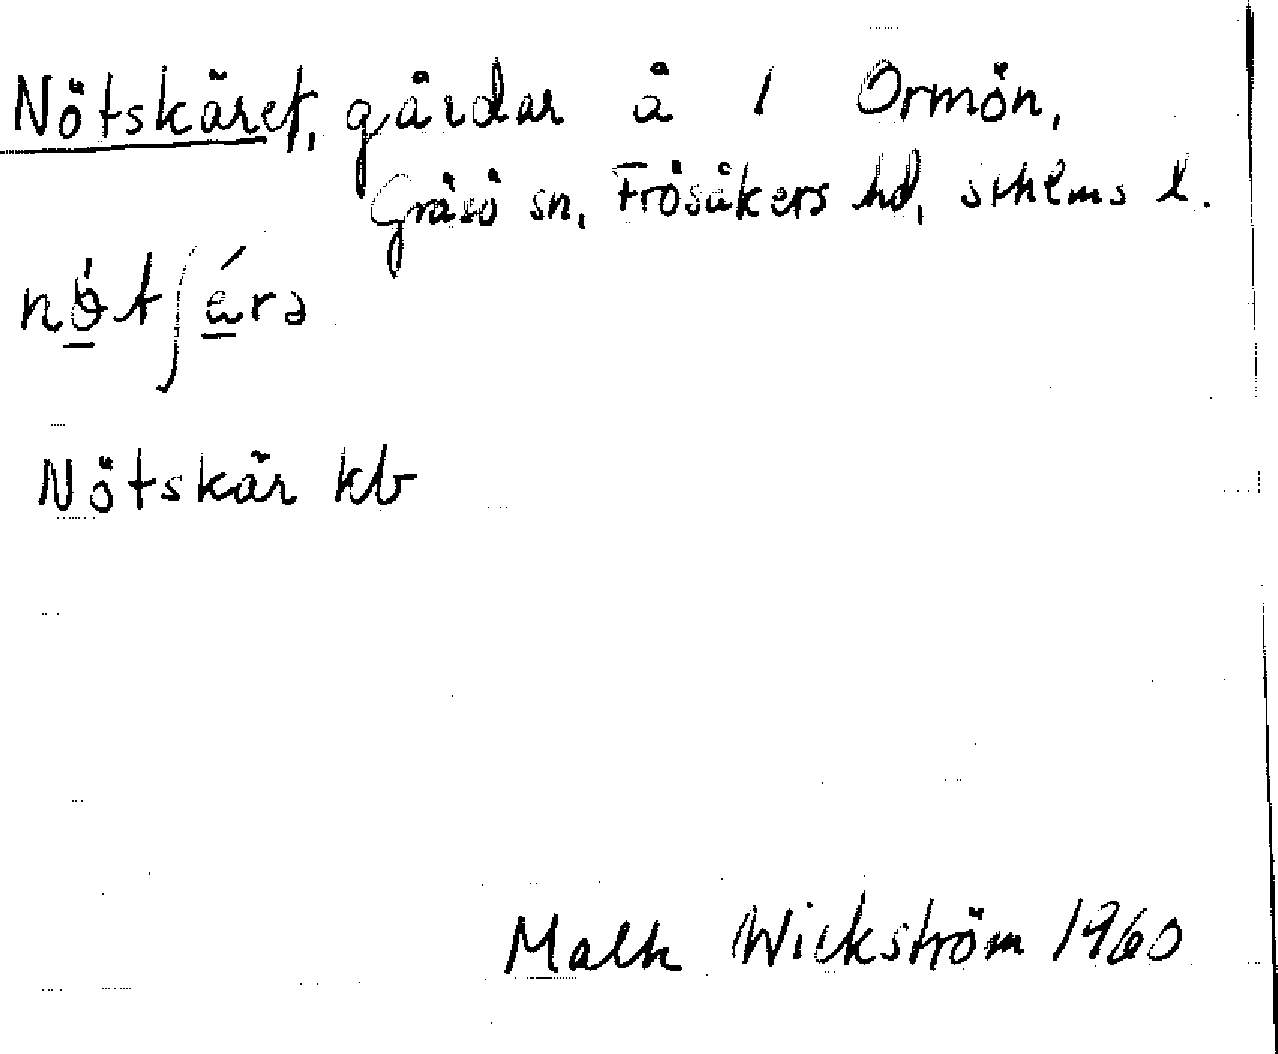 Nötskäret, gårdar å 1 Ormön,
Gräsö sn, Frösåkers hd, sthlms l.
nǿtʃä́rə
Nötskär kb
Malk Wickström 1960